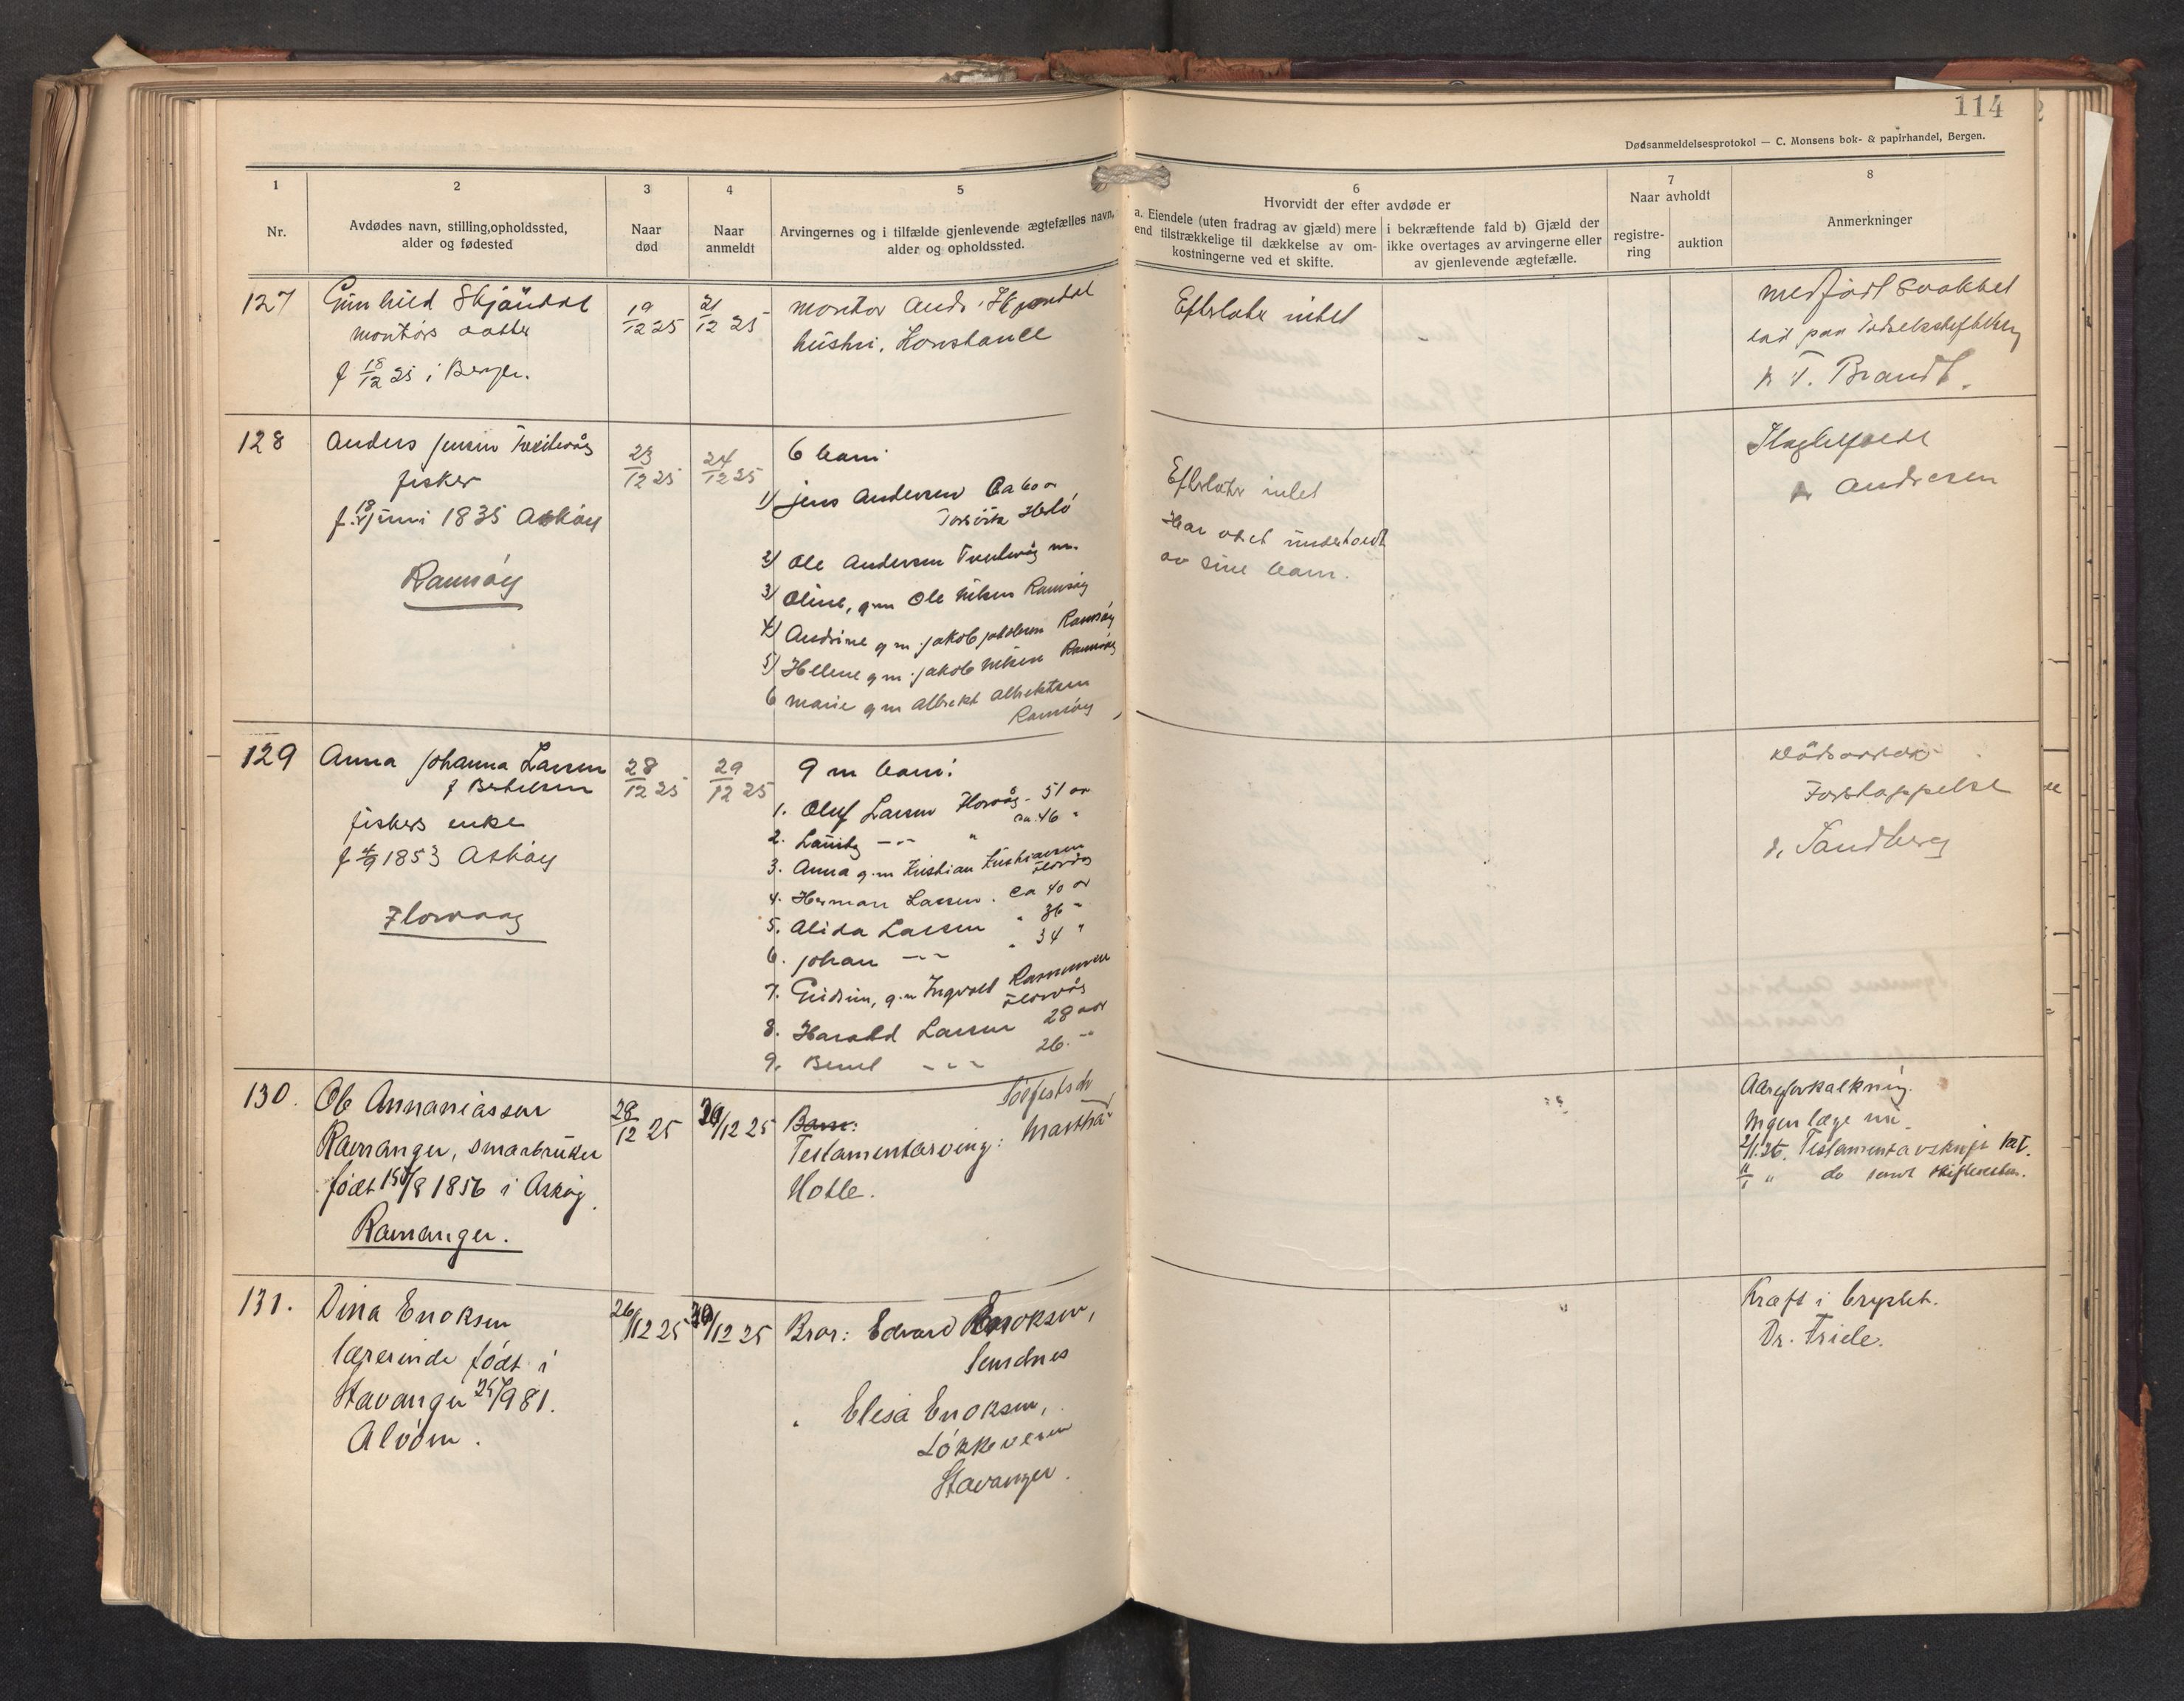 114
Dødsanmeldelsesprotokol — C. Monsens bok- & papirhandel, Bergen.
1
Nr.
2
Avdødes navn, stilling, opholdssted,
alder og fødested
3
Naar
død
4
Naar
anmeldt
5
Arvingernes og i tilfælde gjenlevende ægtefælles navn,
alder og opholdssted.
6
Hvorvidt der efter avdøde er
a. Eiendele (uten fradrag av gjæld) mere
end tilstrækkelige til dækkelse av om-
kostningerne ved et skifte.
i bekræftende fald b) Gjæld der
ikke overtages av arvingerne eller
av gjenlevende ægtefælle.
7
Naar avholdt
registre-
ring
auktion
8
Anmerkninger
127
Gunhild Skjöndal
montörs datter
f 18/12 25 i Bergen.
19/12 25
21/12 25
montör Andr. Skjöndal
hustru, Konstance
Efterlater intet
medfødt svakhet
Brandt.
128
Anders Jensen
fisker
f. 18 juni 1835 Askøy
Ramsöy
23/12 25
24/12 25
6 barn
1) Jens Andersen Ca 60 år
Herlö
2) Ole Andersen
3) Oline, g.m Ole Nilsen Ramsöy
4) Andrine g m Jakob Jakobsen Ramsöy
5) Helene g m Jakob Nilsen Ramsöy
6 Marie g m Albrekt Albrektsen
Ramsöy
Efterlater intet
Har været underholdt
av sine barn.
Andresen
129
Anna Johanna Larsen
f Bertelsen
fiskers enke
f 4/9 1853 Askøy
Florvaag
28/12 25
29/12 25
9 m barn:
1. Oluf Larsen Florvåg - 51 år
2. Lauritz — " — " ca. 46 "
3. Anna g.m Kristian Kristiansen
Florvåg
4. Herman Larsen. Ca 40 år
5. Alida Larsen " 36 "
6. Johan — " — " 34 "
7. Gudrun, g.m Ingvald Rasmussen
Florvåg
8. Harald Larsen 28 aar
9. Bernt — " — 26 — "
Dödsorsak
Forstoppelse
d. Sandberg
130.
Ole Annaniassen
Ramanger, smaabruker
født 15/8 1856 i Askøy.
Ramanger.
28/12 25
30/12 25
Barn:
Testamentarving: Martha
Hotle.
Aareforkalkning.
Ingen læge
2/1.26. Testamentavskrift
" do sendt skifteretten.
131.
Dina Enoksen
lærerinde født i
Stavanger 25/9 81.
Alvöen.
26/12 25
30/12 25
Bror: Edvard Enoksen,
Sandnes
" Elisa Enoksen,
Lökkeveien
Stavanger.
Kræft i brystet.
Dr. Friele.